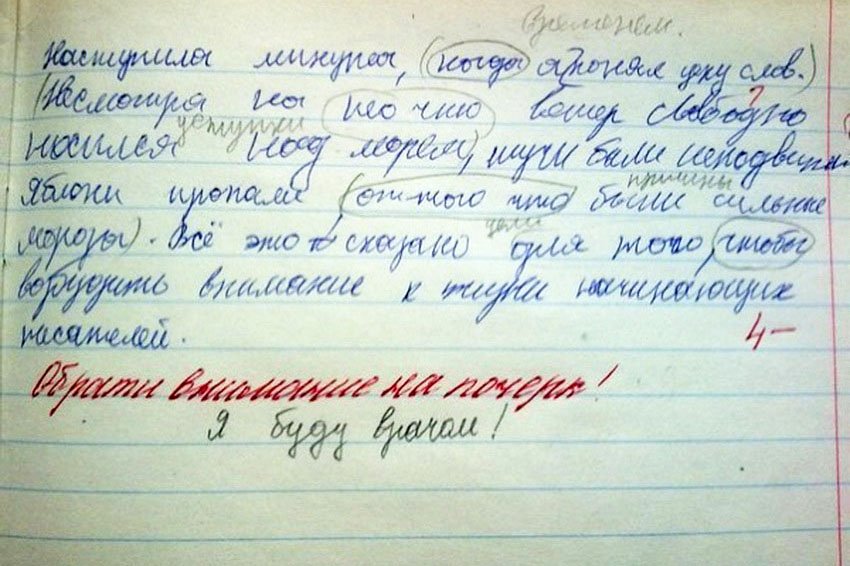 временем.
Наступила минута, (когда я понял цену слов.)
(Несмотря на то что ветер свободно
уступки
носился над морем), тучи были неподвижны
причины
Яблони пропали (оттого что были сильные
цели
морозы). Всё это сказано для того, чтобы
возбудить внимание к жизни начинающих
писателей.
4-
Обрати внимание на почерк!
Я буду врачом!